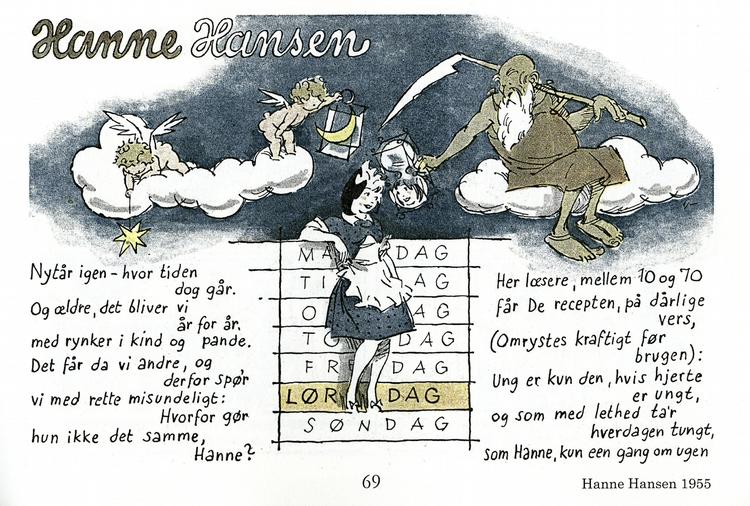 Hanne Hansen
Nytår igen – hvor tiden
dog går.
Og ældre, det bliver vi
år for år,
med rynker i kind og pande.
Det får da vi andre, og
derfor spø'r
vi med rette misundeligt:
Hvorfor gør
hun ikke det samme,
Hanne?
MA DAG
TI AG
O AG
TO DAG
FR DAG
LØR DAG
SØNDAG
Her læsere, mellem 10 og 70
får De recepten, på dårlige
vers,
(Omrystes kraftigt før
brugen):
Ung er kun den, hvis hjerte
er ungt,
og som med lethed ta'r
hverdagen tungt,
som Hanne, kun een gang om ugen
69
Hanne Hansen 1955